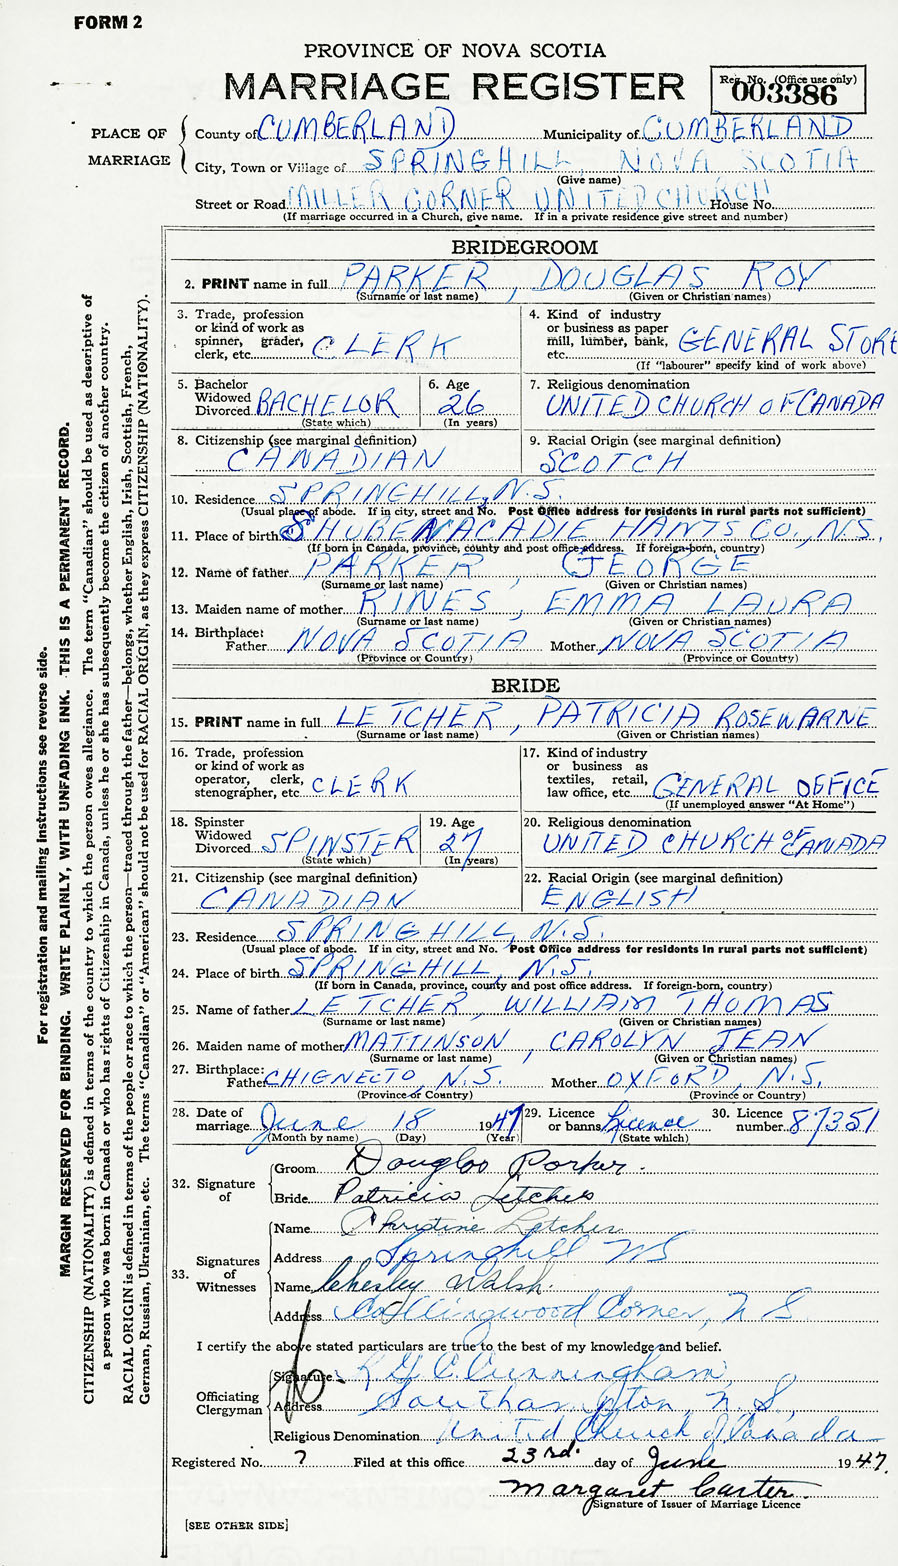 FORM 2
PROVINCE OF NOVA SCOTIA
MARRIAGE REGISTER
Reg. No. (Office use only)
003386
PLACE OF MARRIAGE
County of CUMBERLAND Municipality of CUMBERLAND
City, Town or Village of SPRINGHILL NOVA SCOTIA
(Give name)
Street or Road MILLER CORNER UNITED CHURCH House No.
(If marriage occurred in a Church, give name. If in a private residence give street and number)
BRIDEGROOM
2. PRINT name in full PARKER, DOUGLAS ROY
(Surname or last name) (Given or Christian names)
3. Trade, profession
or kind of work as
spinner, grader,
clerk, etc. CLERK
4. Kind of industry
or business as paper
mill, lumber, bank,
etc. GENERAL STORE
(If "labourer" specify kind of work above)
5. Bachelor
Widowed
Divorced BACHELOR
(State which)
6. Age
26
(In years)
7. Religious denomination
UNITED CHURCH OF CANADA
8. Citizenship (see marginal definition)
CANADIAN
9. Racial Origin (see marginal definition)
SCOTCH
10. Residence SPRINGHILL, N.S.
(Usual place of abode. If in city, street and No. Post Office address for residents in rural parts not sufficient)
11. Place of birth SHUBENACADIE HANTS CO., N.S.
(If born in Canada, province, county and post office address. If foreign-born, country)
12. Name of father PARKER, GEORGE
(Surname or last name) (Given or Christian names)
13. Maiden name of mother RINES, EMMA LAURA
(Surname or last name) (Given or Christian names)
14. Birthplace:
Father NOVA SCOTIA Mother NOVA SCOTIA
(Province or Country) (Province or Country)
BRIDE
15. PRINT name in full LETCHER, PATRICIA ROSEWARNE
(Surname or last name) (Given or Christian names)
16. Trade, profession
or kind of work as
operator, clerk,
stenographer, etc CLERK
17. Kind of industry
or business as
textiles, retail,
law office, etc. GENERAL OFFICE
(If unemployed answer "At Home")
18. Spinster
Widowed
Divorced SPINSTER
(State which)
19. Age
27
(In years)
20. Religious denomination
UNITED CHURCH OF CANADA
21. Citizenship (see marginal definition)
CANADIAN
22. Racial Origin (see marginal definition)
ENGLISH
23. Residence SPRINGHILL, N.S.
(Usual place of abode. If in city, street and No. Post Office address for residents in rural parts not sufficient)
24. Place of birth SPRINGHILL, N.S.
(If born in Canada, province, county and post office address. If foreign-born, country)
25. Name of father LETCHER, WILLIAM THOMAS
(Surname or last name) (Given or Christian names)
26. Maiden name of mother MATTINSON, CAROLYN JEAN
(Surname or last name) (Given or Christian names)
27. Birthplace:
Father CHIGNECTO, N.S. Mother OXFORD, N.S.
(Province or Country) (Province or Country)
28. Date of
marriage June 18 1947
(Month by name) (Day) (Year)
29. Licence
or banns Licence
(State which)
30. Licence
number 87351
32. Signature of
Groom Douglas Parker.
Bride Patricia Letcher
33. Signatures of Witnesses
Name Christine Letcher
Address Springhill NS
Name Chesley Walsh.
Address Collingwood Corner, N S
I certify the above stated particulars are true to the best of my knowledge and belief.
Officiating Clergyman
Signature Cunningham,
Address Southampton, N.S.,
Religious Denomination United Church of Canada
Registered No. 7 Filed at this office 23rd. day of June 1947.
Margaret Carter.
Signature of Issuer of Marriage Licence
[SEE OTHER SIDE]
For registration and mailing instructions see reverse side.
MARGIN RESERVED FOR BINDING. WRITE PLAINLY, WITH UNFADING INK. THIS IS A PERMANENT RECORD.
CITIZENSHIP (NATIONALITY) is defined in terms of the country to which the person owes allegiance. The term "Canadian" should be used as descriptive of
a person who was born in Canada or who has rights of Citizenship in Canada, unless he or she has subsequently become the citizen of another country.
RACIAL ORIGIN is defined in terms of the people or race to which the person—traced through the father—belongs, whether English, Irish, Scottish, French,
German, Russian, Ukrainian, etc. The terms "Canadian" or "American" should not be used for RACIAL ORIGIN, as they express CITIZENSHIP (NATIONALITY).